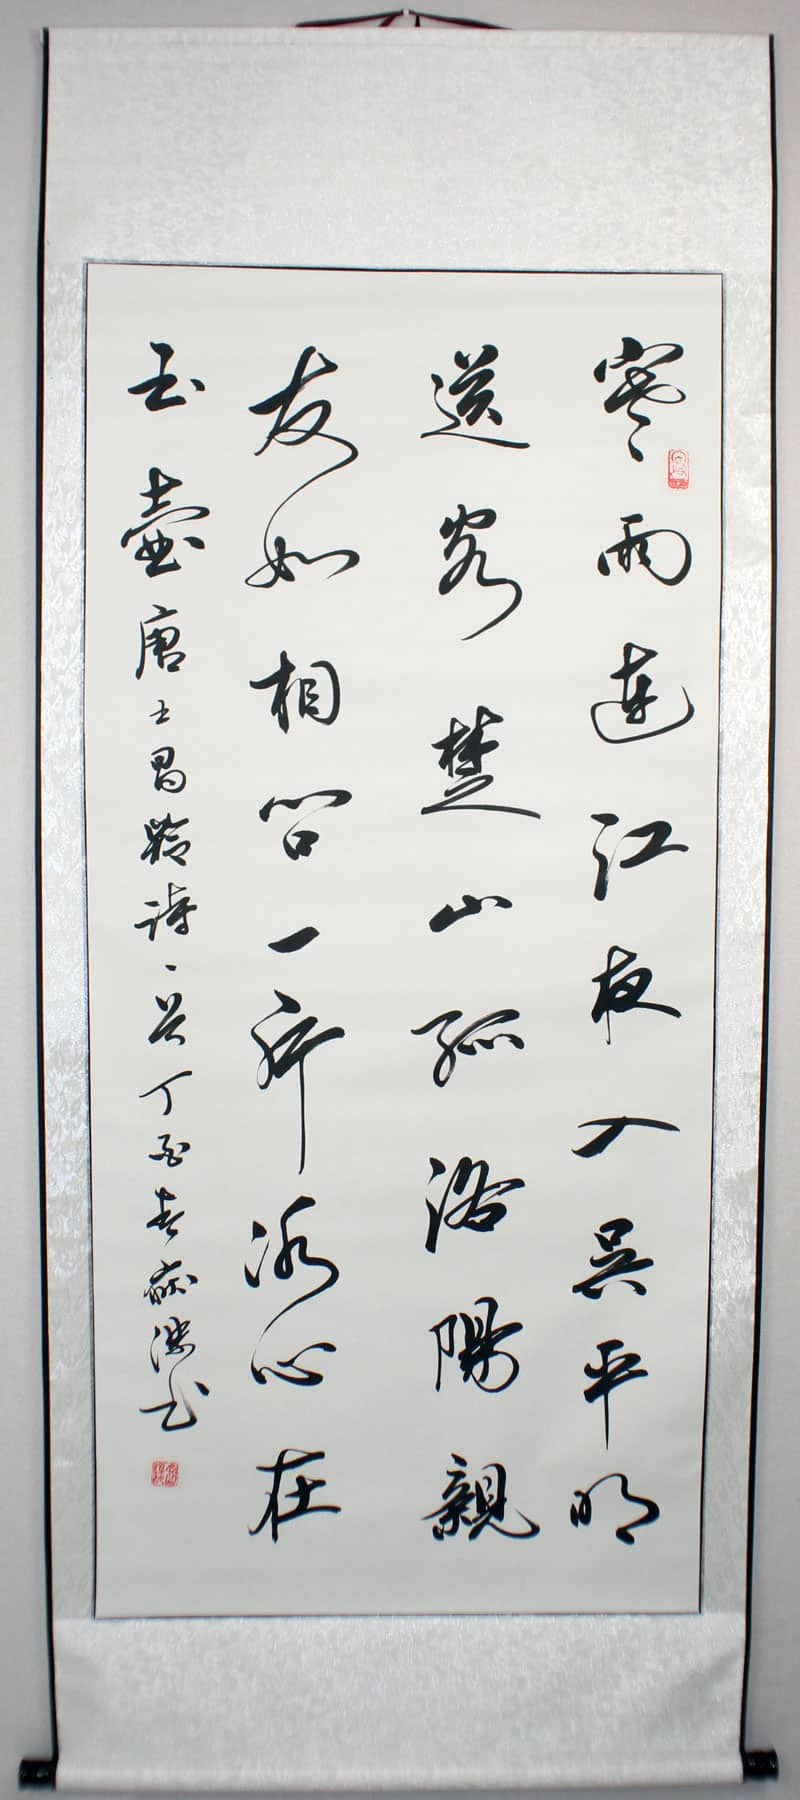 寒雨連江夜入吳平明
送客楚山孤洛陽親
友如相問一片冰心在
玉壺唐王昌齡詩一首丁酉春